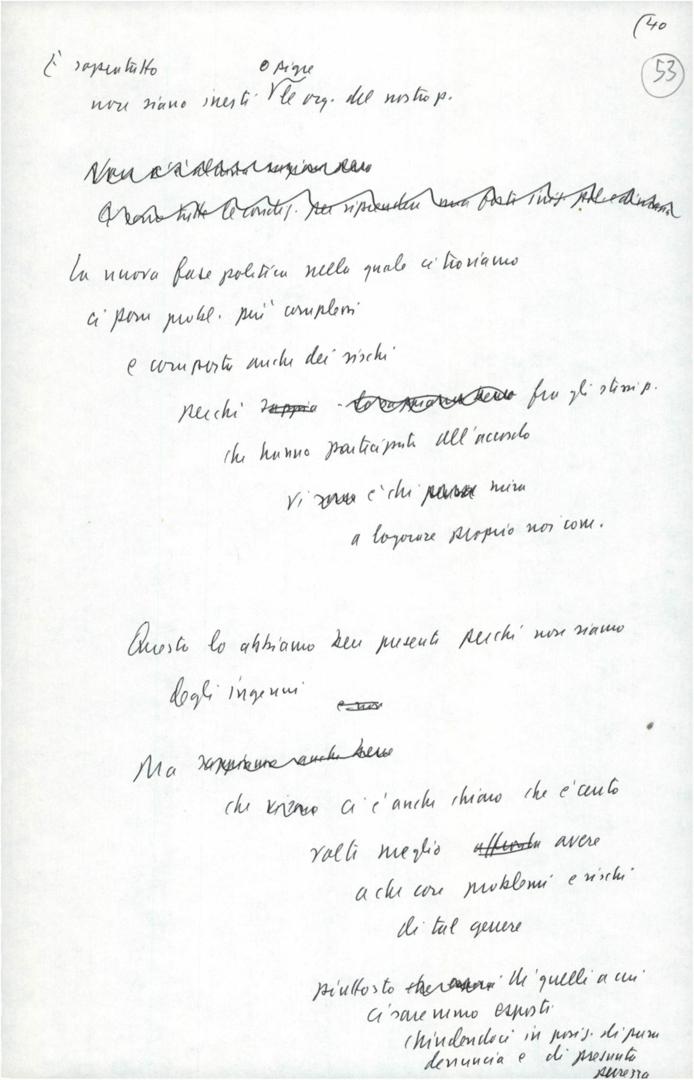 (40
53
È soprattutto o pigre
non siano inerti le org. del nostro p.
La nuova fase politica nella quale ci troviamo
ci pone probl. più complessi
e comporta anche dei rischi
perché fra gli stessi p.
che hanno partecipato all'accordo
vi è chi mira
a logorare proprio noi com.
Questo lo abbiamo ben presente perché non siamo
degli ingenui
e non
Ma sappiamo anche bene
che ci è anche chiaro che è cento
volte meglio avere
a che core problemi e rischi
di tal genere
piuttosto di quelli a cui
ci saremmo esposti
chiudendoci in posiz. di pura
denuncia e di presunta
purezza